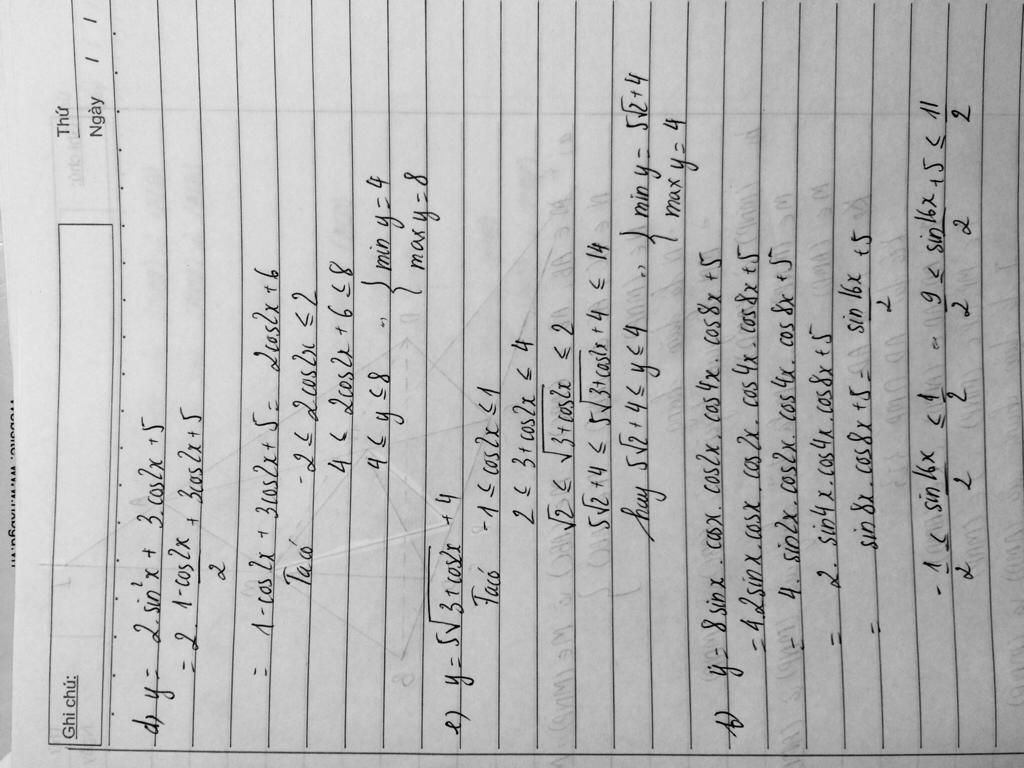 Ghi chú:
Thứ
Ngày / /
d) y = 2.sin²x + 3.cos2x + 5
= 2. (1-cos2x)/2 + 3cos2x + 5
= 1-cos2x + 3cos2x + 5 = 2cos2x + 6
Ta có -2 ≤ 2cos2x ≤ 2
4 ≤ 2cos2x + 6 ≤ 8
4 ≤ y ≤ 8 .. { min y = 4
max y = 8
e) y = 5√(3+cos2x) + 4
Ta có -1 ≤ cos2x ≤ 1
2 ≤ 3+cos2x ≤ 4
√2 ≤ √(3+cos2x) ≤ 2
5√2+4 ≤ 5√(3+cos2x) + 4 ≤ 14
hay 5√2+4 ≤ y ≤ 4 .. { min y = 5√2+4
max y = 4
b) y = 8sinx.cosx.cos2x.cos4x.cos8x+5
= 4.2sinx.cosx.cos2x.cos4x.cos8x+5
= 4.sin2x.cos2x.cos4x.cos8x+5
= 2.sin4x.cos4x.cos8x+5
= sin8x.cos8x+5 = sin16x/2 + 5
-1/2 ≤ sin16x/2 ≤ 1/2 .. 9/2 ≤ sin16x/2 + 5 ≤ 11/2